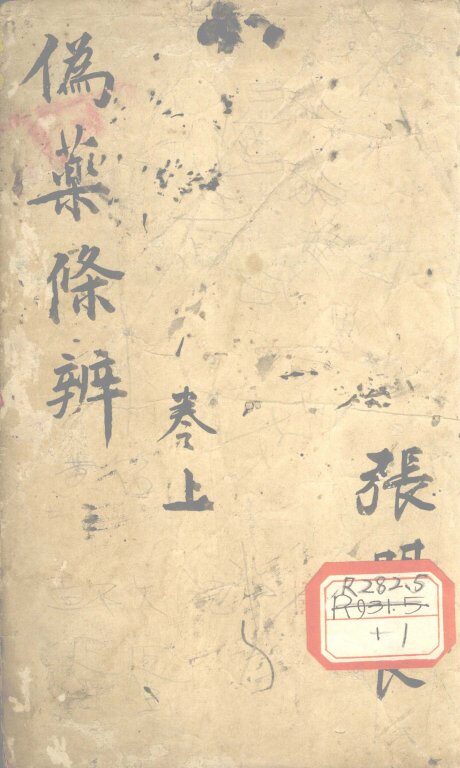 張
卷上
偽藥條辨
R282.5
R931.5
+1